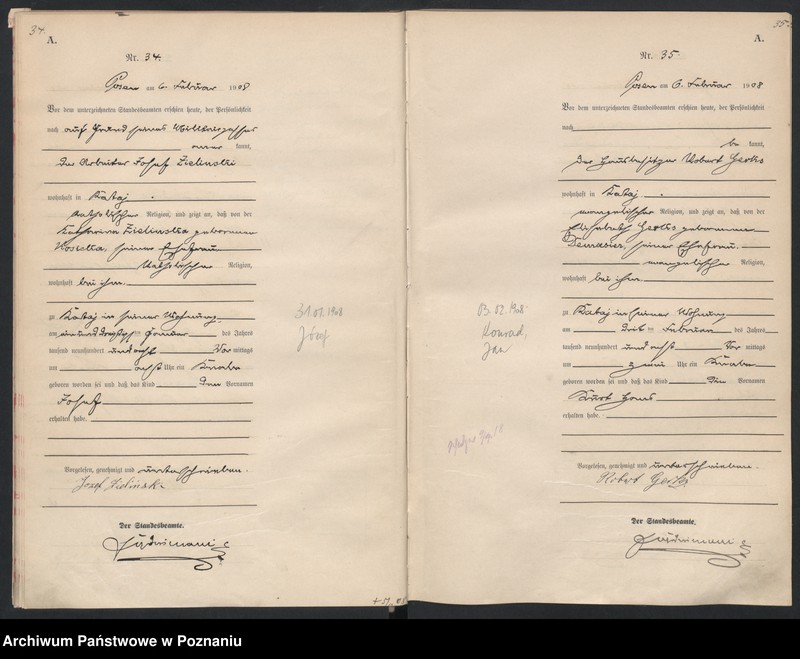 34.
A.
Nr. 34.
Posen am 6. Februar 1908
Vor dem unterzeichneten Standesbeamten erschien heute, der Persönlichkeit
nach auf Grund seines Militärpasses
kannt,
Der Arbeiter Josef Zielinski
wohnhaft in Kataj
katholischer Religion, und zeigt an, daß von der
Katharina Zielinska geborenen
seiner Ehefrau
katholischer Religion,
wohnhaft bei ihm
zu Kataj in seiner Wohnung
am einunddreißigsten Januar des Jahres
tausend neunhundert und acht Vor mittags
um acht Uhr ein Knabe
geboren worden sei und daß das Kind den Vornamen
Josef
erhalten habe.
Vorgelesen, genehmigt und unterschrieben.
Józef Zieliński
Der Standesbeamte.
31.01.1908
Józef
35.
A.
Nr. 35.
Posen am 6. Februar 1908
Vor dem unterzeichneten Standesbeamten erschien heute, der Persönlichkeit
nach
be kannt,
Der Hausbesitzer Robert
wohnhaft in Kataj
evangelischer Religion, und zeigt an, daß von der
Elisabeth geborenen
seiner Ehefrau
evangelischer Religion,
wohnhaft bei ihm
zu Kataj in seiner Wohnung
am Februar des Jahres
tausend neunhundert und acht Vor mittags
um zwei Uhr ein Knabe
geboren worden sei und daß das Kind die Vornamen
Kurt Hans
erhalten habe.
Vorgelesen, genehmigt und unterschrieben.
Robert
Der Standesbeamte.
03.02.1908
Konrad,
Jan
Archiwum Państwowe w Poznaniu